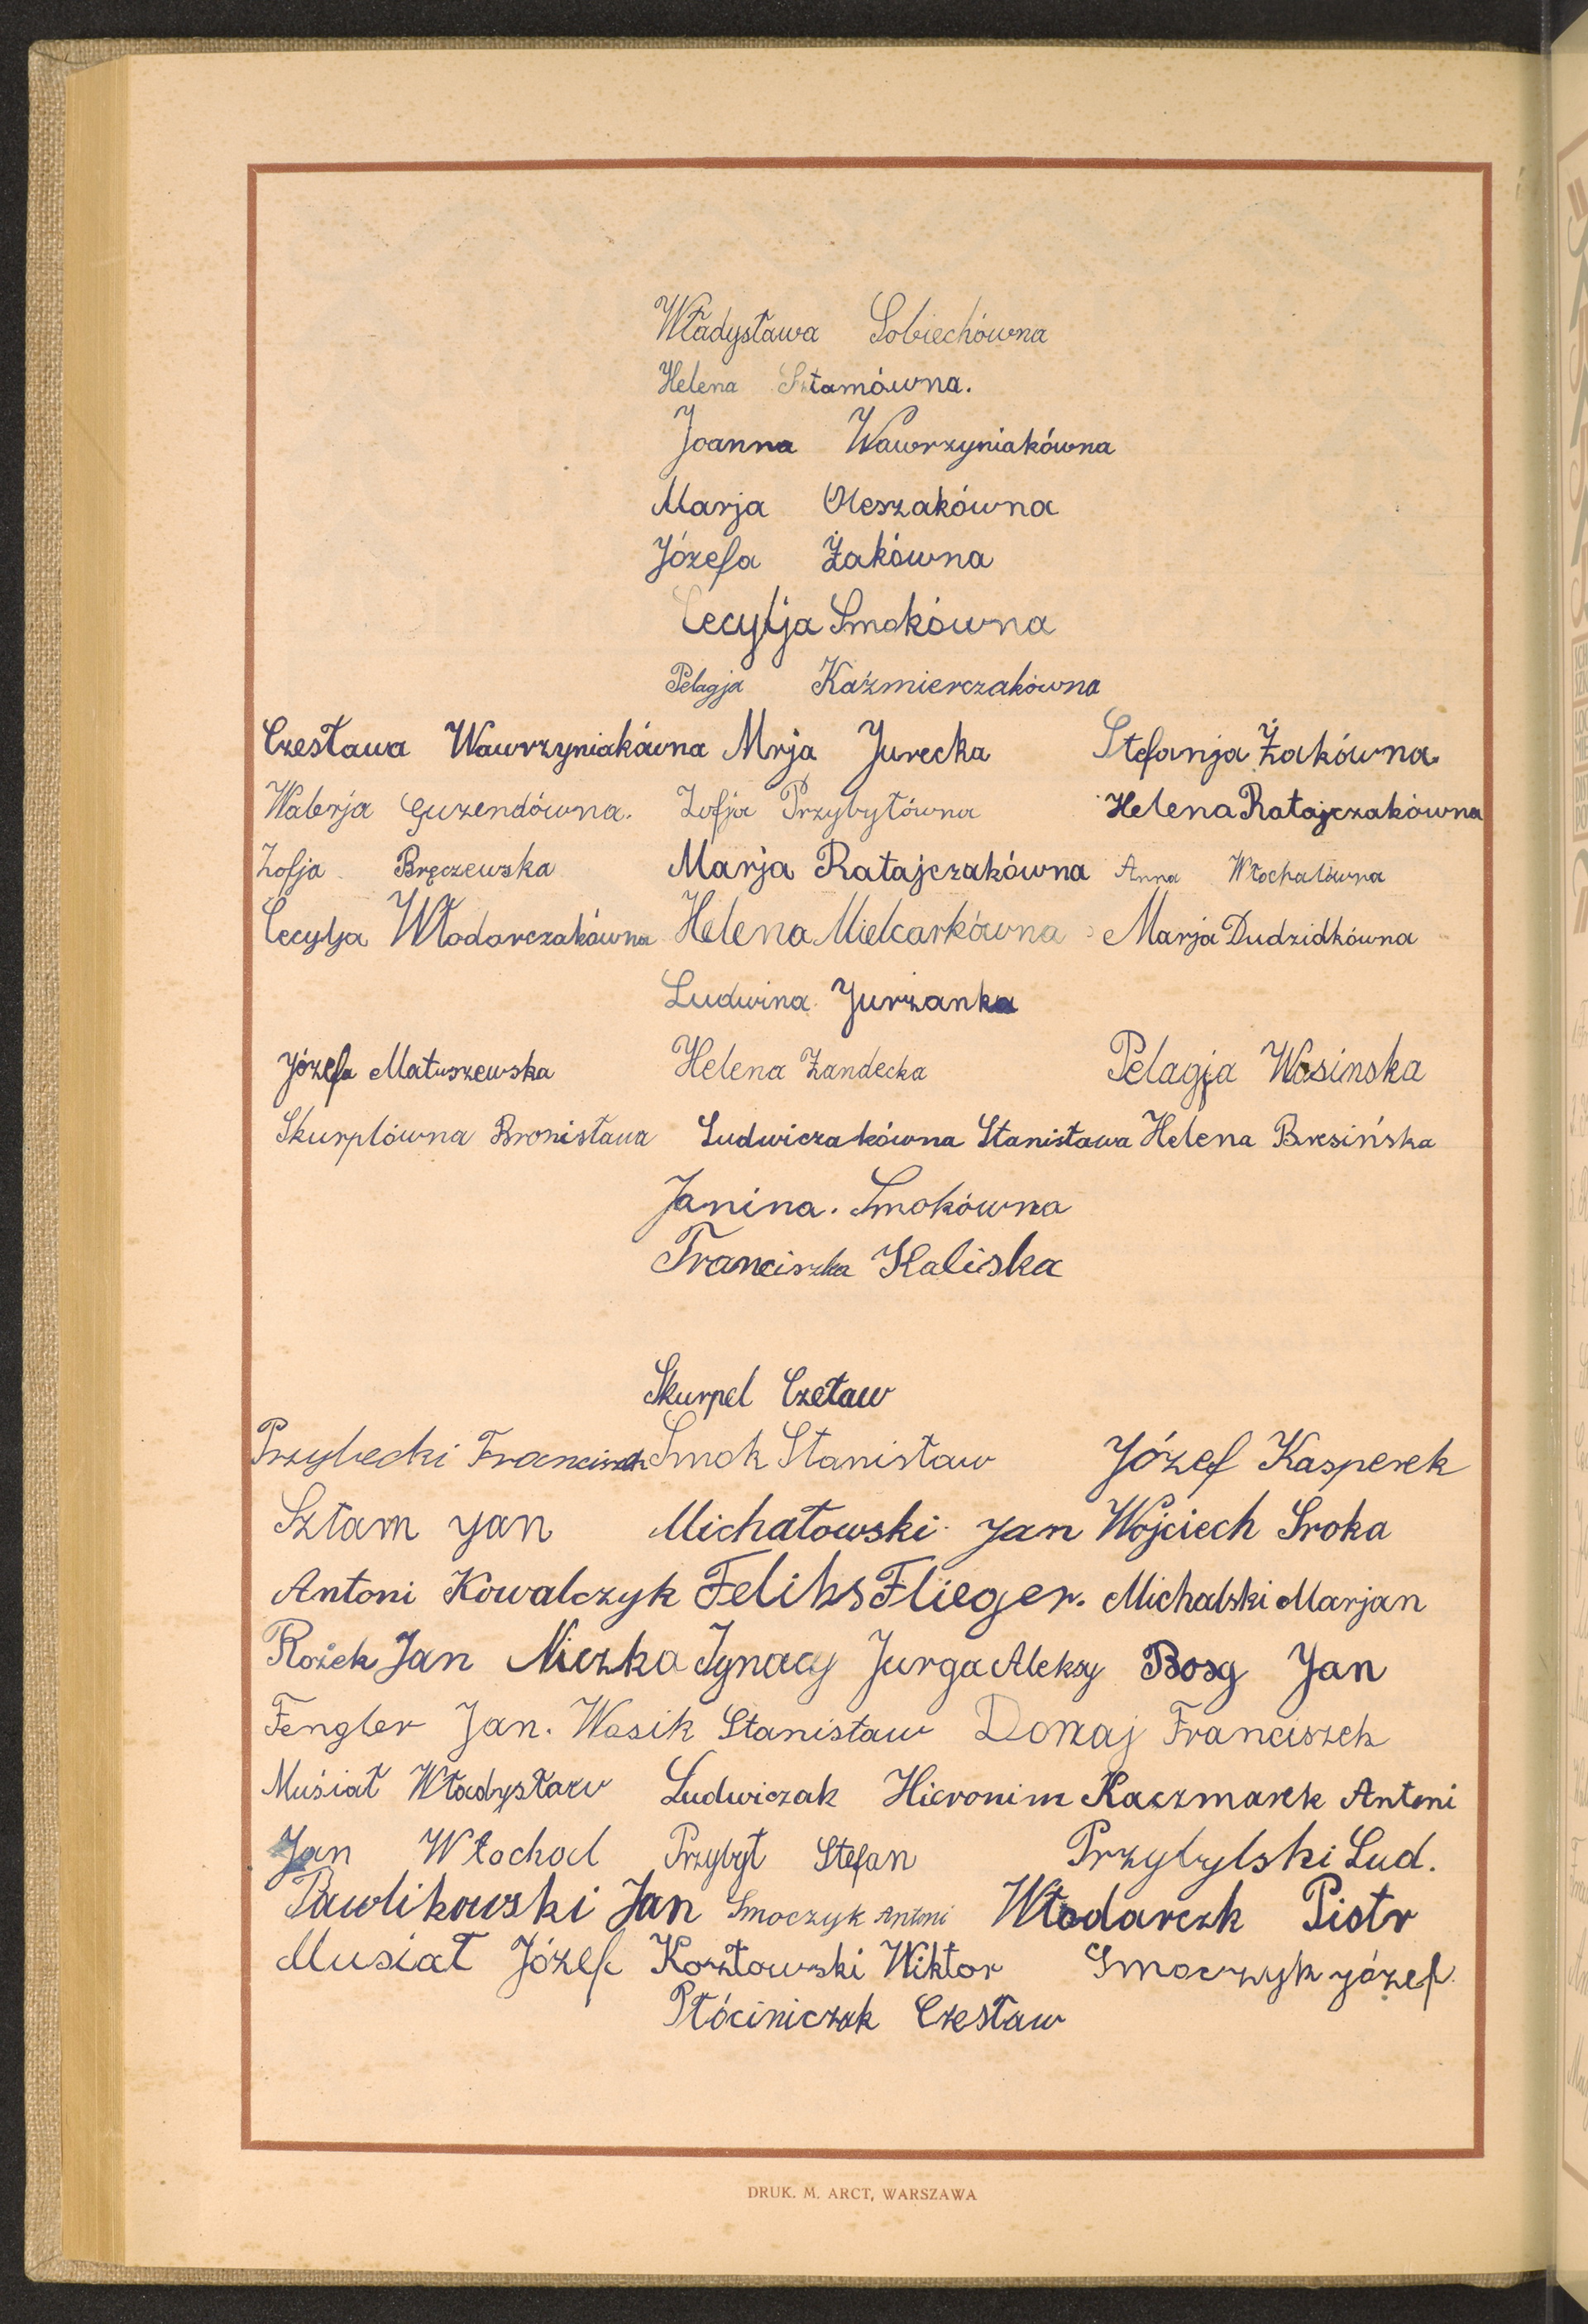 Władysława Sobiechówna
Helena Sztamówna.
Joanna Wawrzyniakówna
Marja Oleszakówna
Józefa Żakówna
Cecylja Smokówna
Pelagja Kaźmierczakówna
Czesława Wawrzyniakówna Mrja Jurecka Stefanja Żakówna.
Walerja Guzendówna. Zofja Przybyłówna Helena Ratajczakówna
Zofja Bręczewska Marja Ratajczakówna Anna Włochalówna
Cecylja Włodarczakówna Helena Mielcarkówna Marja Dudzidkówna
Ludwina Jurzanka
Józefa Matuszewska Helena Żandecka Pelagja Wosinska
Skurplówna Bronisława Ludwiczakówna Stanisława Helena Bresińska
Janina. Smokówna
Franciszka Kaliska
Skurpel Czeław
Przybecki Franciszek Smok Stanisław Józef Kasperek
Sztam Jan Michałowski Jan Wojciech Sroka
Antoni Kowalczyk Feliks Flieger. Michalski Marjan
Rożek Jan Niczka Ignacy Jurga Aleksy Bosy Jan
Fengler Jan. Wasik Stanisław Donaj Franciszek
Muśiał Władysław Ludwiczak Hieronim Kaczmarek Antoni
Jan Włochal Przybył Stefan Przybylski Lud.
Pawlikowski Jan Smoczyk Antoni Włodarczk Piotr
Musiał Józef Kozłowski Wiktor Smoczyk józef.
Płóciniczak Czesław
DRUK. M. ARCT, WARSZAWA